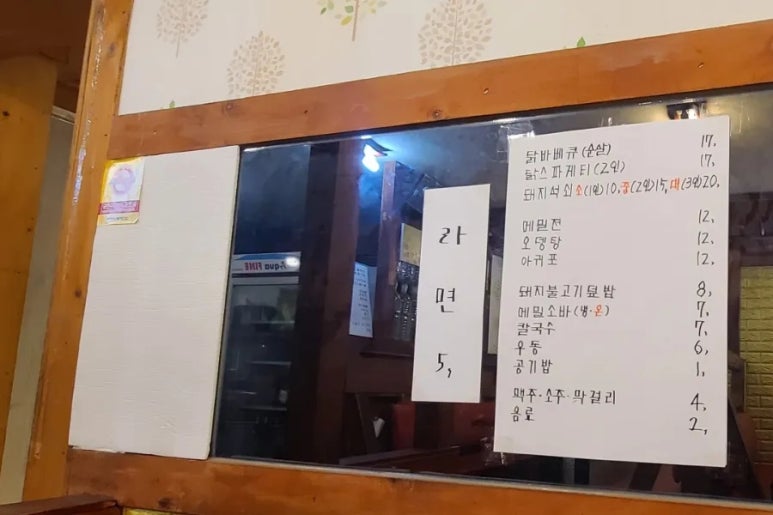 라
면
5,
닭바베큐(순살) 17,
닭스파게티(2인) 17,
돼지석쇠 소(1인)10, 중(2인)15, 대(3인)20,
메밀전 12,
오뎅탕 12,
아귀포 12,
돼지불고기덮밥 8,
메밀소바(냉·온) 7,
칼국수 7,
우동 6,
공기밥 1,
맥주·소주·막걸리 4,
음료 2,
Aqua FINE